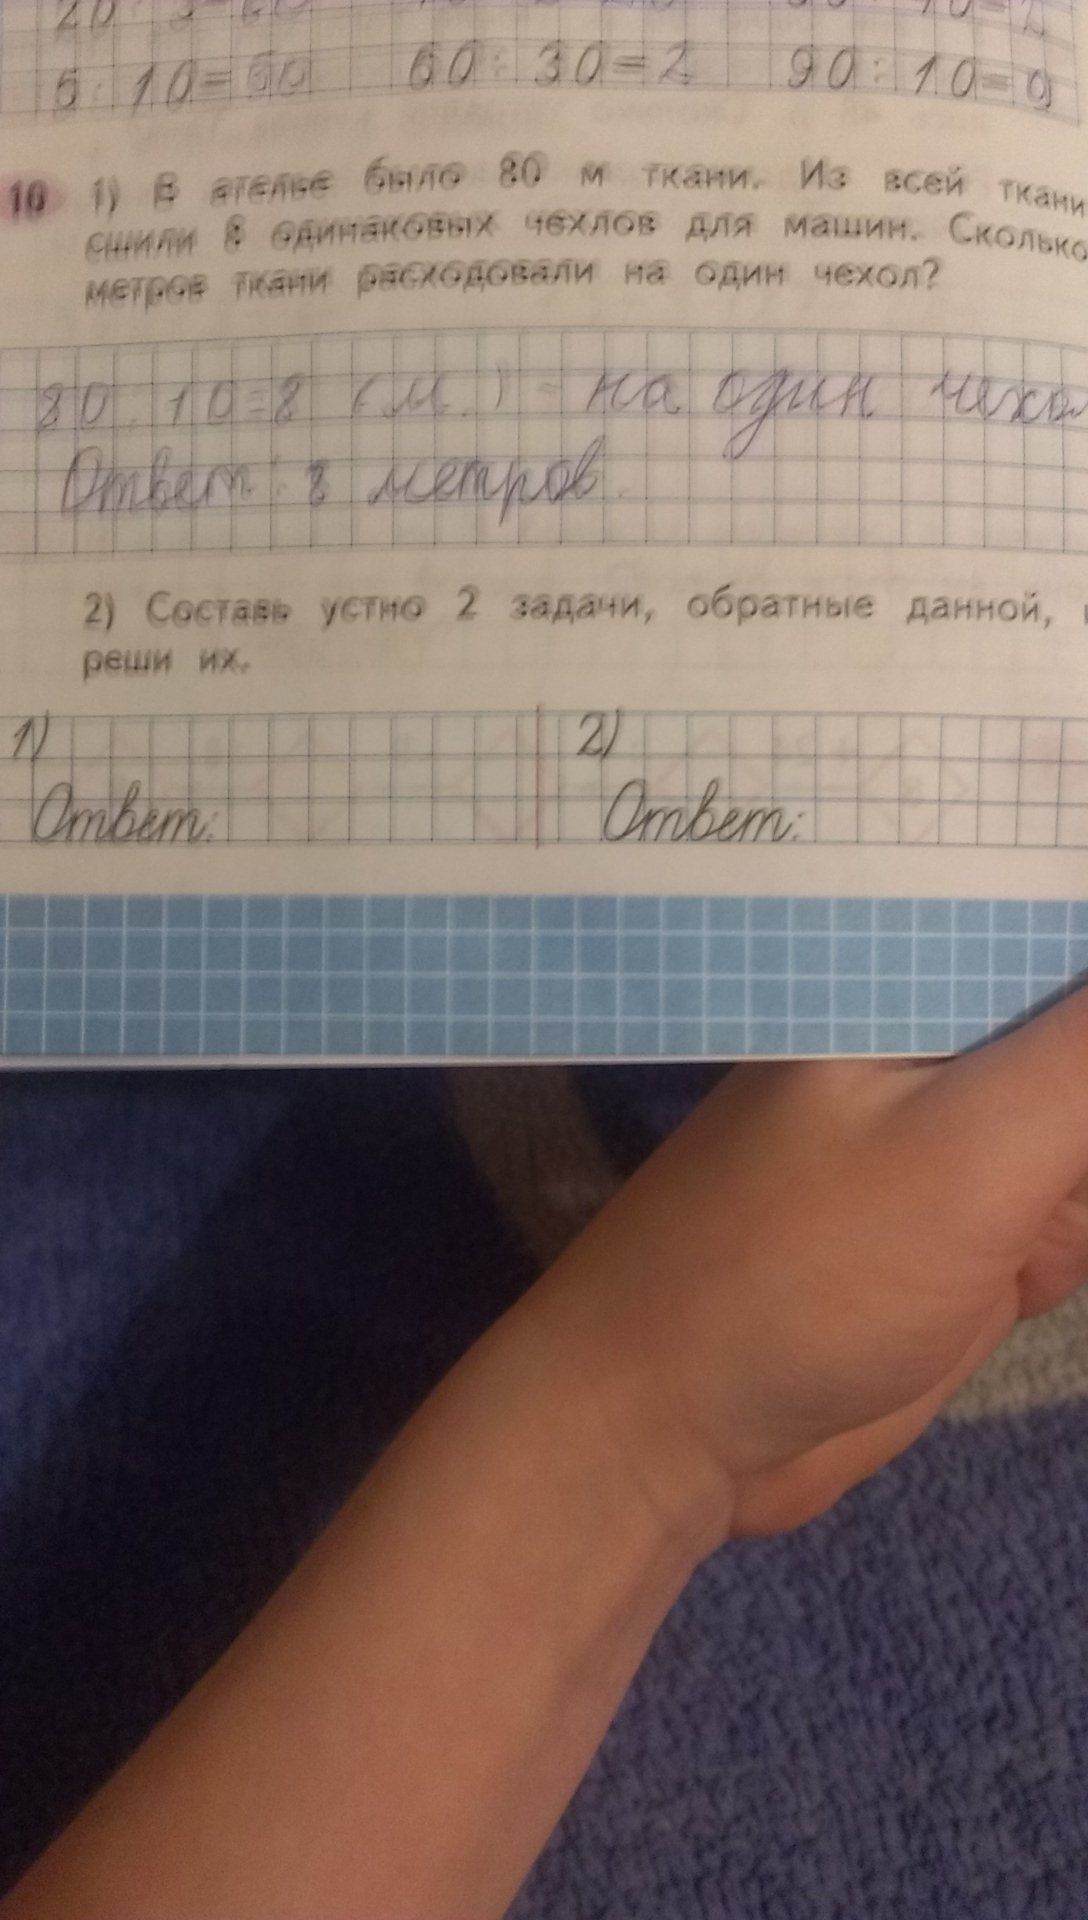 5 · 10=50 60 : 30=2 90 : 10=9
10 1) В ателье было 80 м ткани. Из всей ткани
сшили 8 одинаковых чехлов для машин. Сколько
метров ткани расходовали на один чехол?
80 : 10=8 (м.) - на один чехол
Ответ: 8 метров.
2) Составь устно 2 задачи, обратные данной,
реши их.
1) 2)
Ответ: Ответ: